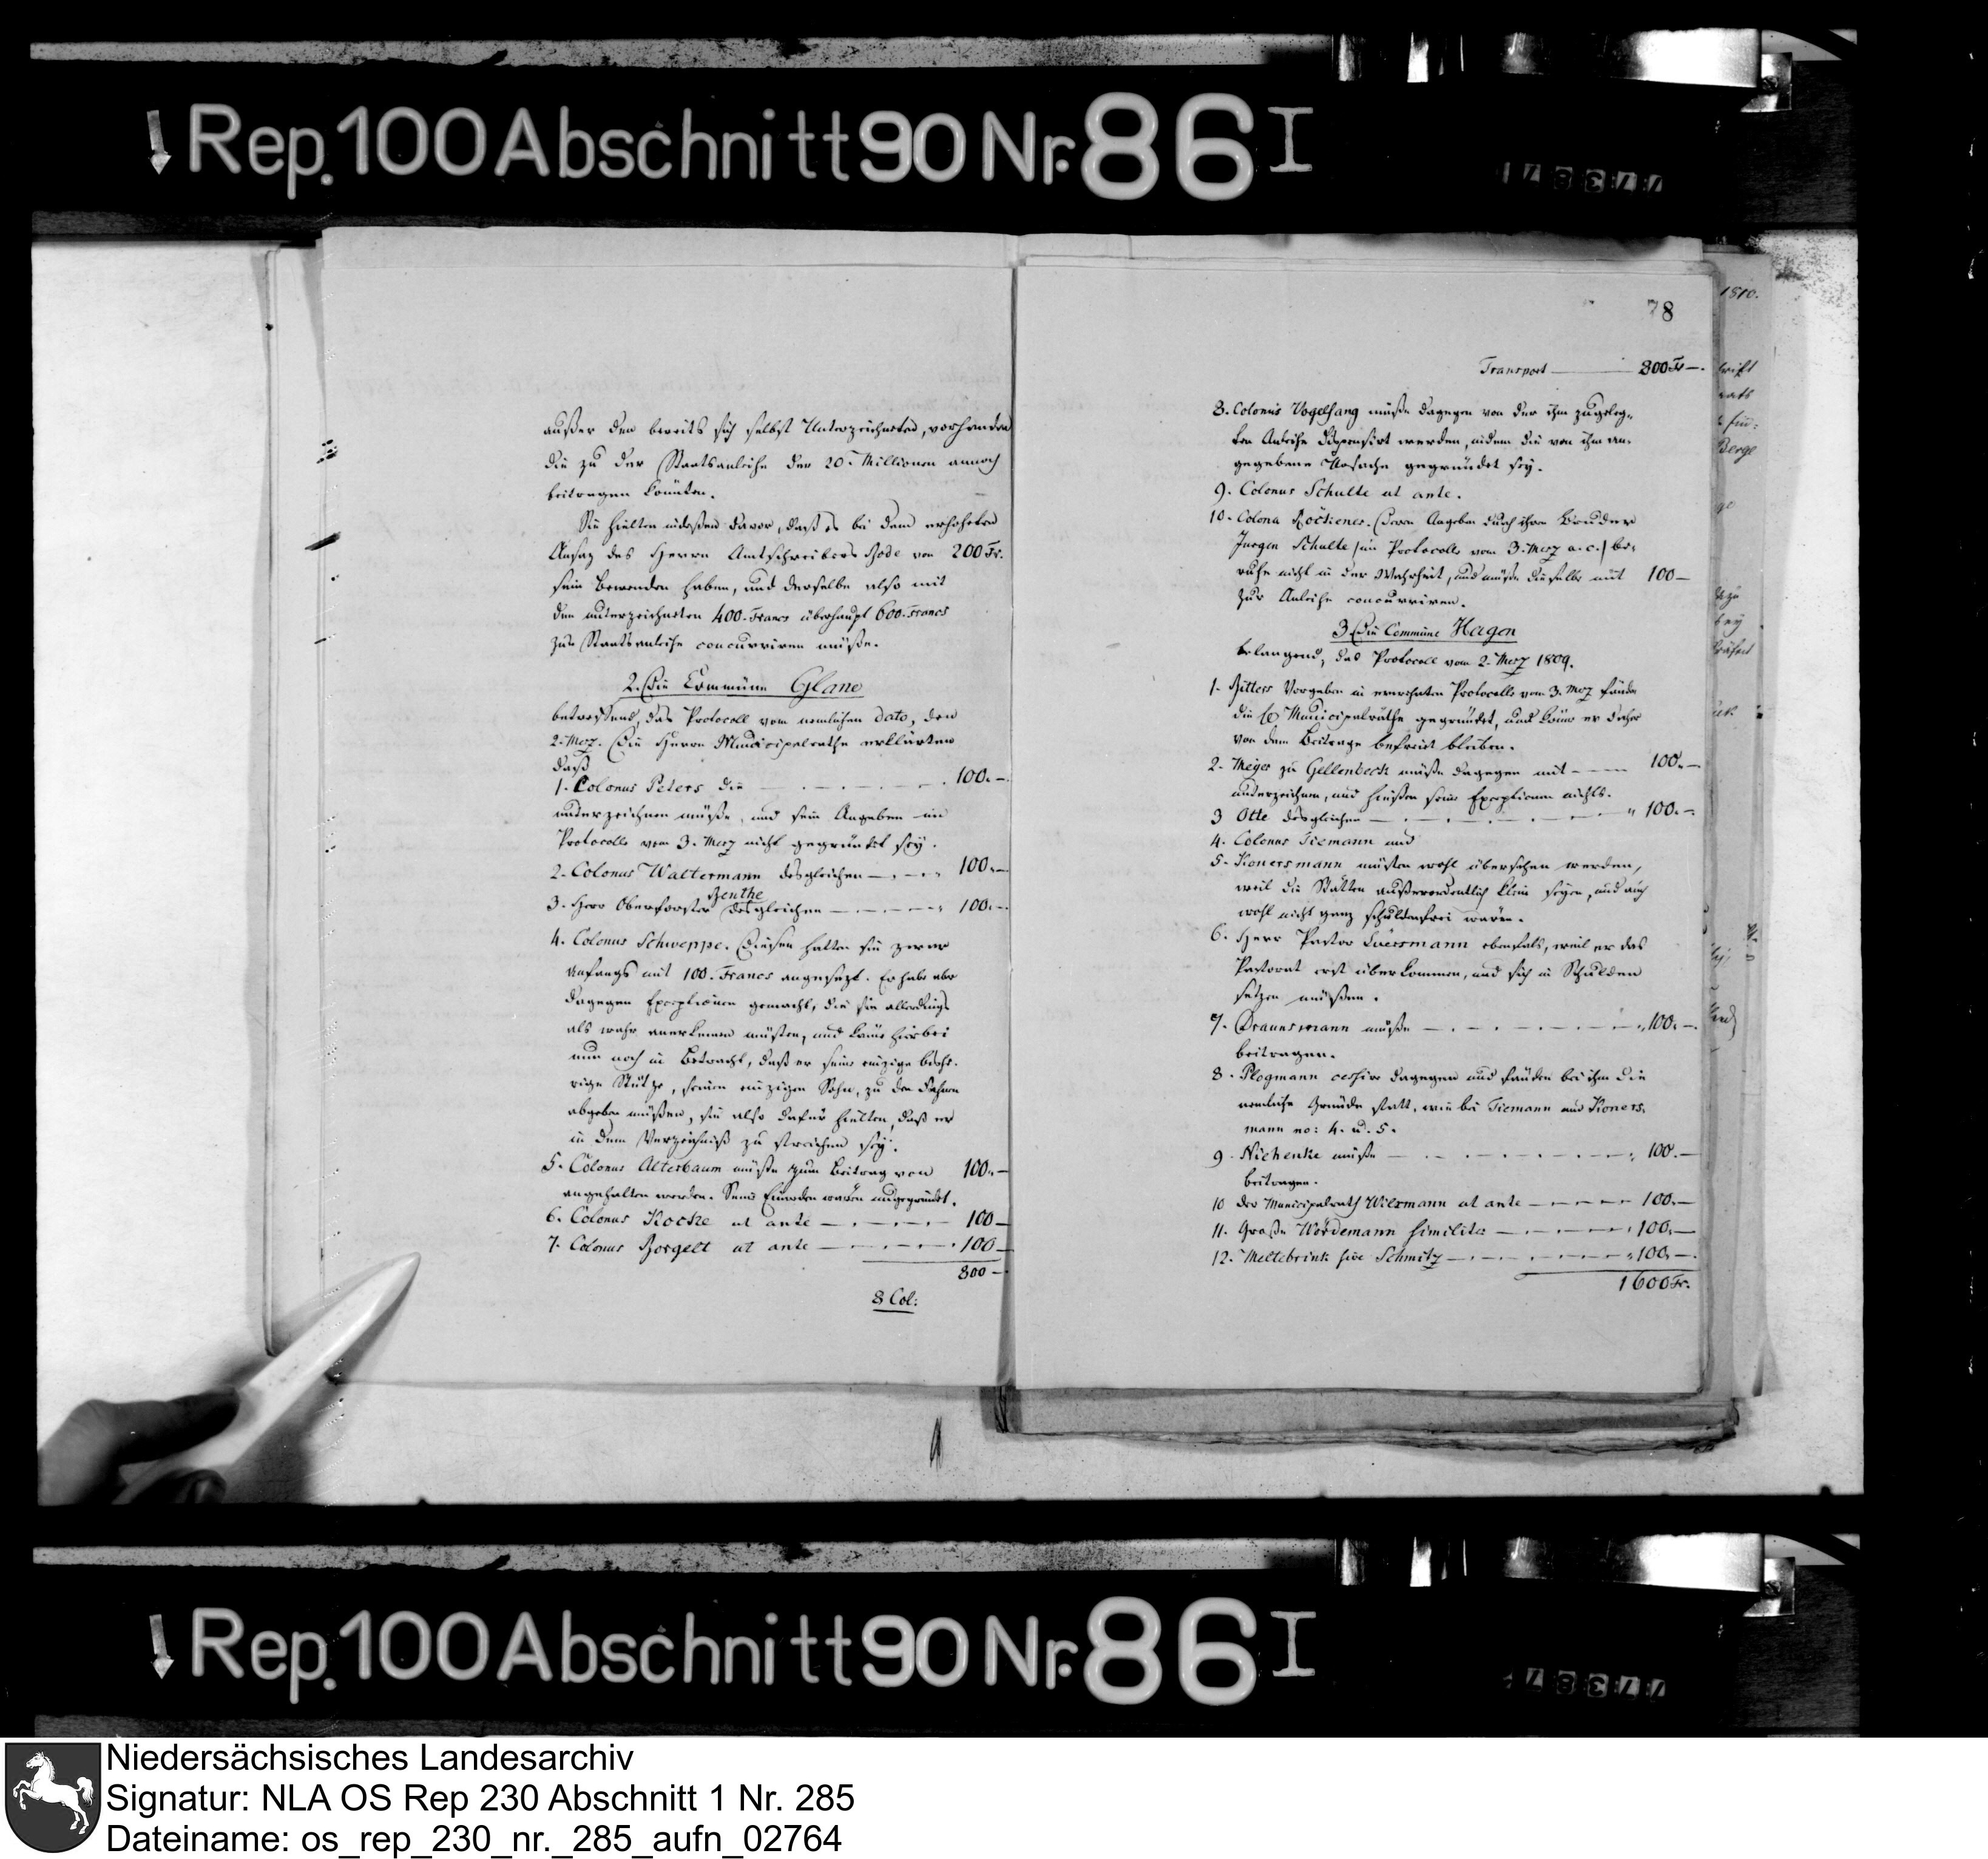 Rep. 100 Abschnitt 90 Nr. 86 I
außer den bereits sich selbst Unterzeichneten, vorhanden
die zu der Staatsanleihe der 20. Millionen annoch
beitragen könnten.
Sie hielten indeßen davor, daß es bei dem erhöheten
Ansaz des Herrn Amtschreibers Bode von 200 Fr.
sein Bewenden haben, und derselbe also mit
den unterzeichneten 400. Francs überhaupt 600. Francs
zur Staatsanleihe concurriren müße.
2. Die Commüne Glane
betreffend, das Protocoll vom nemlichen dato, den
2. Merz. Die Herrn Municipalrathe erklärten
daß
1. Colonus Peters die — 100. —
unterzeichnen müße, und sein Angeben im
Protocolle vom 3. Merz nicht gegründet sey.
2. Colonus Waltermann desgleichen — 100. —
3. Herr Oberforster Benthe desgleichen — 100. —
4. Colonus Schweppe. Diesen hatten sie zwar
anfangs mit 100. Francs angesezt. Er habe aber
dagegen Exceptionen gemacht, die sie allerdings
als wahr anerkennen müsten, und käme hierbei
nun noch in Betracht, daß er seine einzige bishe-
rige Stütze, seinen einzigen Sohn, zu den Fahnen
abgeben müßen, sie also dafür hielten, daß er
in dem Verzeichniß zu streichen sey.
5. Colonus Alterbaum müße zum Beitrag von 100. —
angehalten werden. Seine Einreden wären ungegründet.
6. Colonus Kocke ut ante — 100 —
7. Colonus Borgelt ut ante — 100 —
800 —
8 Col:
78
Transport — 800 Fr —.
8. Colonus Vogelsang müße dagegen von der ihm zugeleg-
ten Anleihe dispensirt werden, indem die von ihm an-
gegebene Ursache gegründet sey.
9. Colonus Schulte ut ante.
10. Colona Deren Angeben durch ihren Bruder
Jurgen Schulte /im Protocolle vom 3. Merz a. c./ be-
ruhe nicht in der Wahrheit, und müße dieselbe mit 100 —
zur Anleihe concurriren.
3 Die Commüne Hagen
belangend, das Protocoll vom 2. Merz 1809.
1. Ritters Vorgeben in erwehnten Protocolle vom 3. Merz fänden
die Municipalräthe gegründet, und könne er daher
von dem Beitrage befreiet bleiben.
2. Meyer zu Gellenbeck müße dagegen mit — 100. —
unterzeichnen, und hießen seine Exceptionen nichts.
3 Otte desgleichen — " 100. —
4. Colonus Tiemann und
5. Konersmann müsten wohl übersehen werden,
weil die Stätten außerordentlich klein seyen, und auch
wohl nicht ganz schuldenfrei wären.
6. Herr Pastor ebenfals, weil er das
Pastorat erst überkommen, und sich in Schulden
setzen müßen.
7. Braunsmann müße — 100. —
beitragen.
8. Plogmann cessire dagegen und fänden bei ihm die
nemliche Gründe statt, wie bei Tiemann und Koners-
mann no: 4. u. 5.
9. Niehenke müße — 100. —
beitragen.
10 der Municipalrath Wilxmann ut ante — 100. —
11. Große Wördemann similiter — 100. —
12. Meltebrink sive Schmitz — 100. —
1600 Fr.
1810.
Berge
Rep. 100 Abschnitt 90 Nr. 86 I
Niedersächsisches Landesarchiv
Signatur: NLA OS Rep 230 Abschnitt 1 Nr. 285
Dateiname: os_rep_230_nr._285_aufn_02764